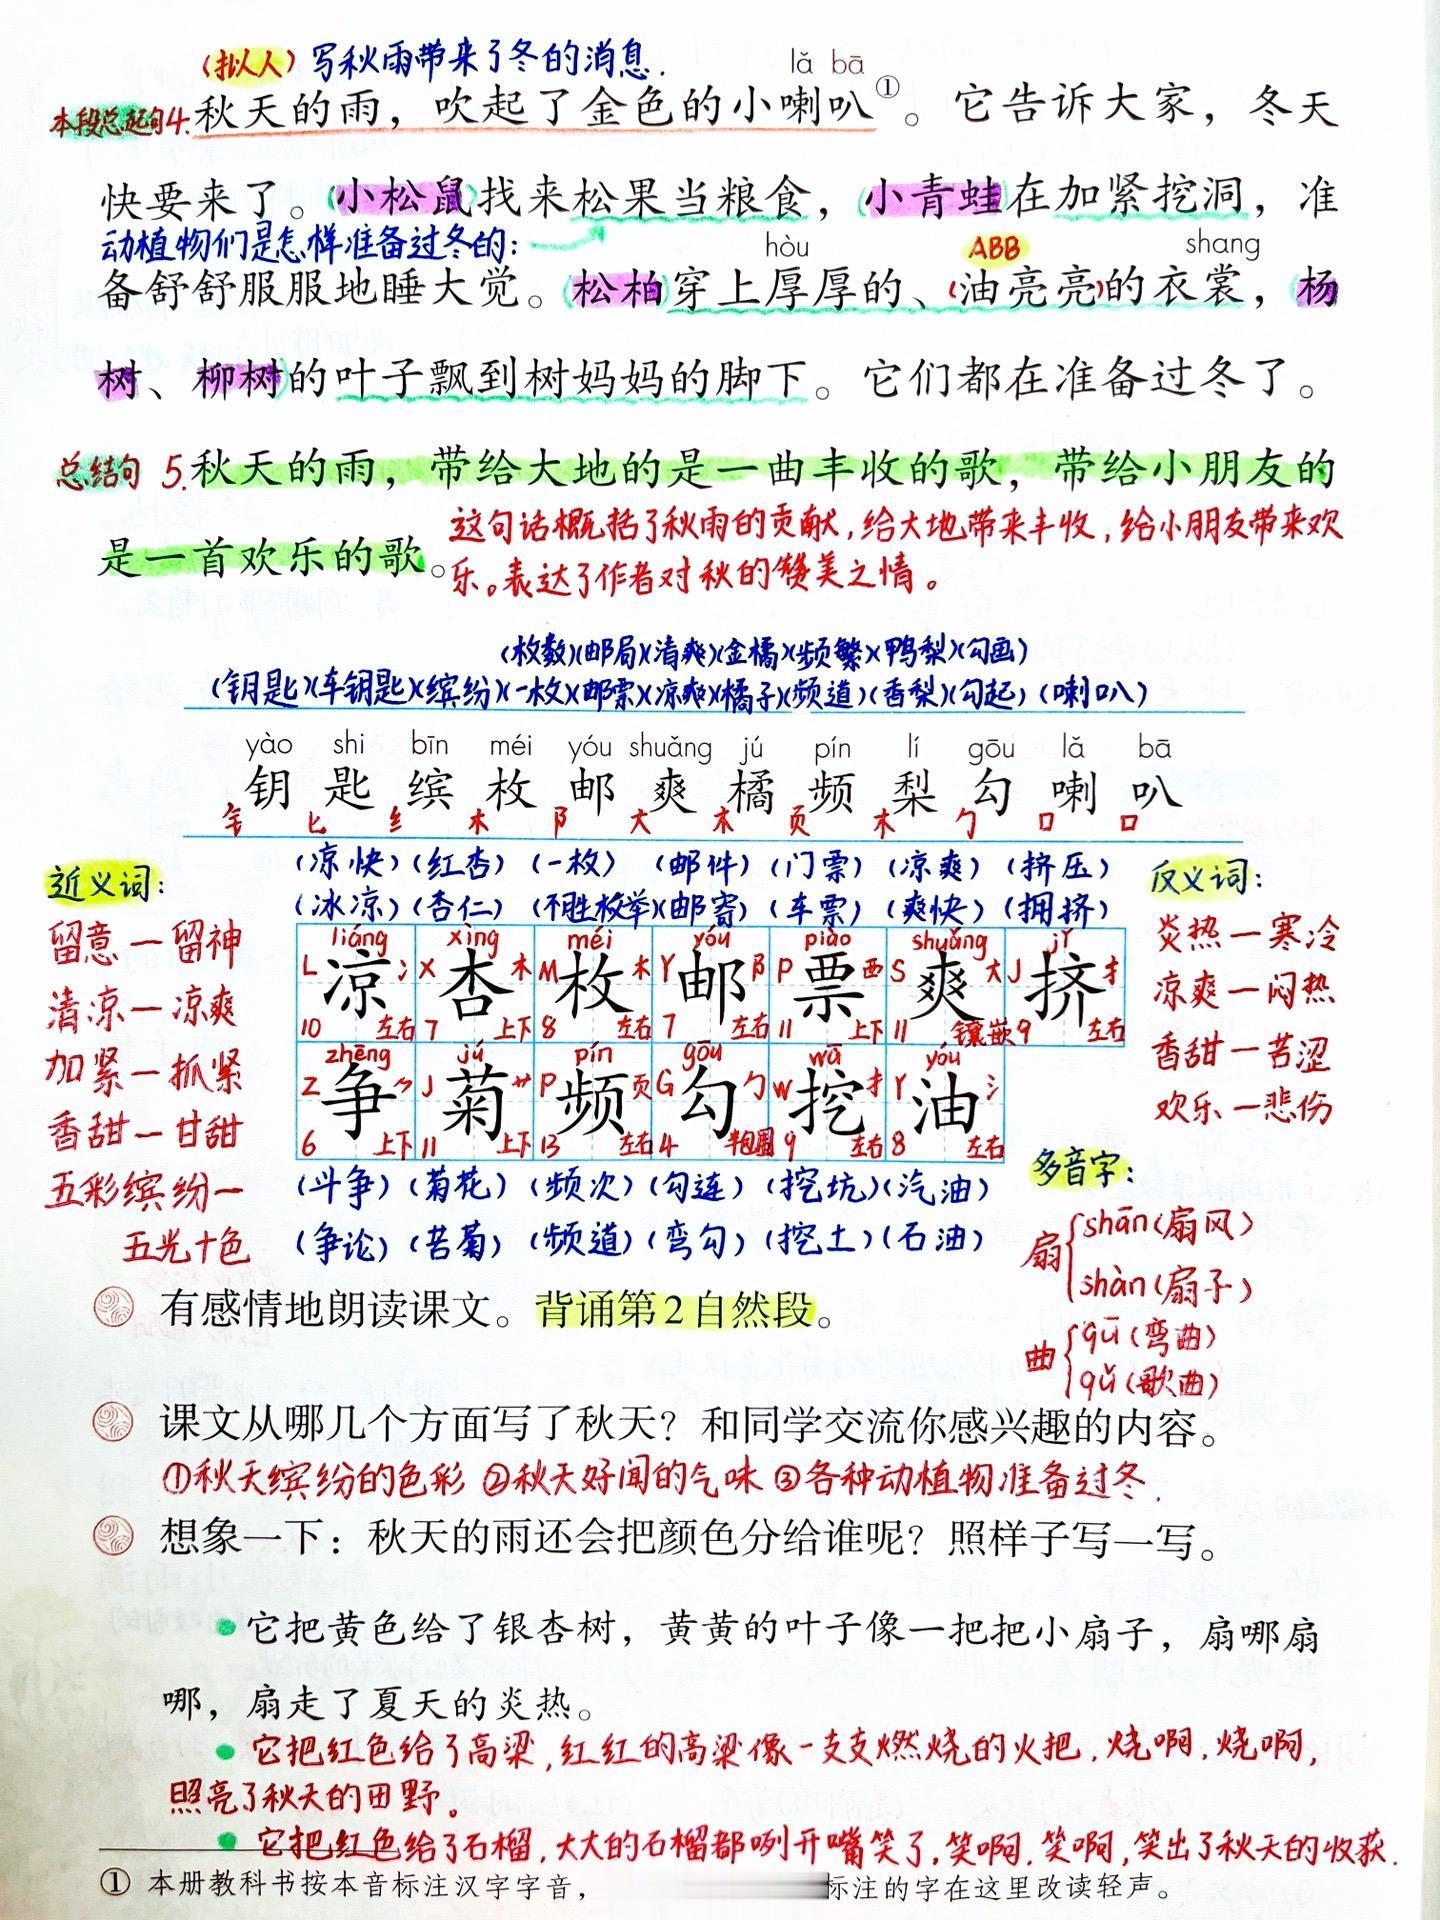 (拟人)写秋雨带来了冬的消息.
lǎ bā
本段总起句4.秋天的雨，吹起了金色的小喇叭①。它告诉大家，冬天
快要来了。(小松鼠)找来松果当粮食，(小青蛙)在加紧挖洞，准
动植物们是怎样准备过冬的:
hòu ABB shang
备舒舒服服地睡大觉。(松柏)穿上厚厚的、(油亮亮)的衣裳，(杨
树、柳树)的叶子飘到树妈妈的脚下。它们都在准备过冬了。
总结句 5.秋天的雨，带给大地的是一曲丰收的歌，带给小朋友的
是一首欢乐的歌。
这句话概括了秋雨的贡献,给大地带来丰收,给小朋友带来欢
乐。表达了作者对秋的赞美之情。
(枚数)(邮局)(清爽)(金橘)(频繁)(鸭梨)(勾画)
(钥匙)(车钥匙)(缤纷)(一枚)(邮票)(凉爽)(橘子)(频道)(香梨)(勾起)(喇叭)
yào shi bīn méi yóu shuǎng jú pín lí gōu lǎ bā
钥 匙 缤 枚 邮 爽 橘 频 梨 勾 喇 叭
钅 匕 纟 木 阝 大 木 页 木 勹 口 口
近义词:
留意—留神
清凉—凉爽
加紧—抓紧
香甜—甘甜
五彩缤纷—
五光十色
(凉快)(红杏)(一枚)(邮件)(门票)(凉爽)(挤压)
(冰凉)(杏仁)(不胜枚举)(邮寄)(车票)(爽快)(拥挤)
liáng xìng méi yóu piào shuǎng jǐ
L 凉 冫 X 杏 木 M 枚 木 Y 邮 阝 P 票 西 S 爽 大 J 挤 扌
10 左右 7 上下 8 左右 7 左右 11 上下 11 镶嵌 9 左右
zhēng jú pín gōu wā yóu
Z 争 ⺈ J 菊 艹 P 频 页 G 勾 勹 W 挖 扌 Y 油 氵
6 上下 11 上下 13 左右 4 半包围 9 左右 8 左右
(斗争)(菊花)(频次)(勾连)(挖坑)(汽油)
(争论)(苦菊)(频道)(弯勾)(挖土)(石油)
反义词:
炎热—寒冷
凉爽—闷热
香甜—苦涩
欢乐—悲伤
多音字:
扇{shān(扇风)
shàn(扇子)
曲{qū(弯曲)
qǔ(歌曲)
有感情地朗读课文。背诵第2自然段。
课文从哪几个方面写了秋天？和同学交流你感兴趣的内容。
①秋天缤纷的色彩 ②秋天好闻的气味 ③各种动植物准备过冬.
想象一下：秋天的雨还会把颜色分给谁呢？照样子写一写。
●它把黄色给了银杏树，黄黄的叶子像一把把小扇子，扇哪扇
哪，扇走了夏天的炎热。
●它把红色给了高梁,红红的高梁像一支支燃烧的火把.烧啊.烧啊,
照亮了秋天的田野。
●它把红色给了石榴,大大的石榴都咧开嘴笑了,笑啊.笑啊,笑出了秋天的收获.
① 本册教科书按本音标注汉字字音，
标注的字在这里改读轻声。